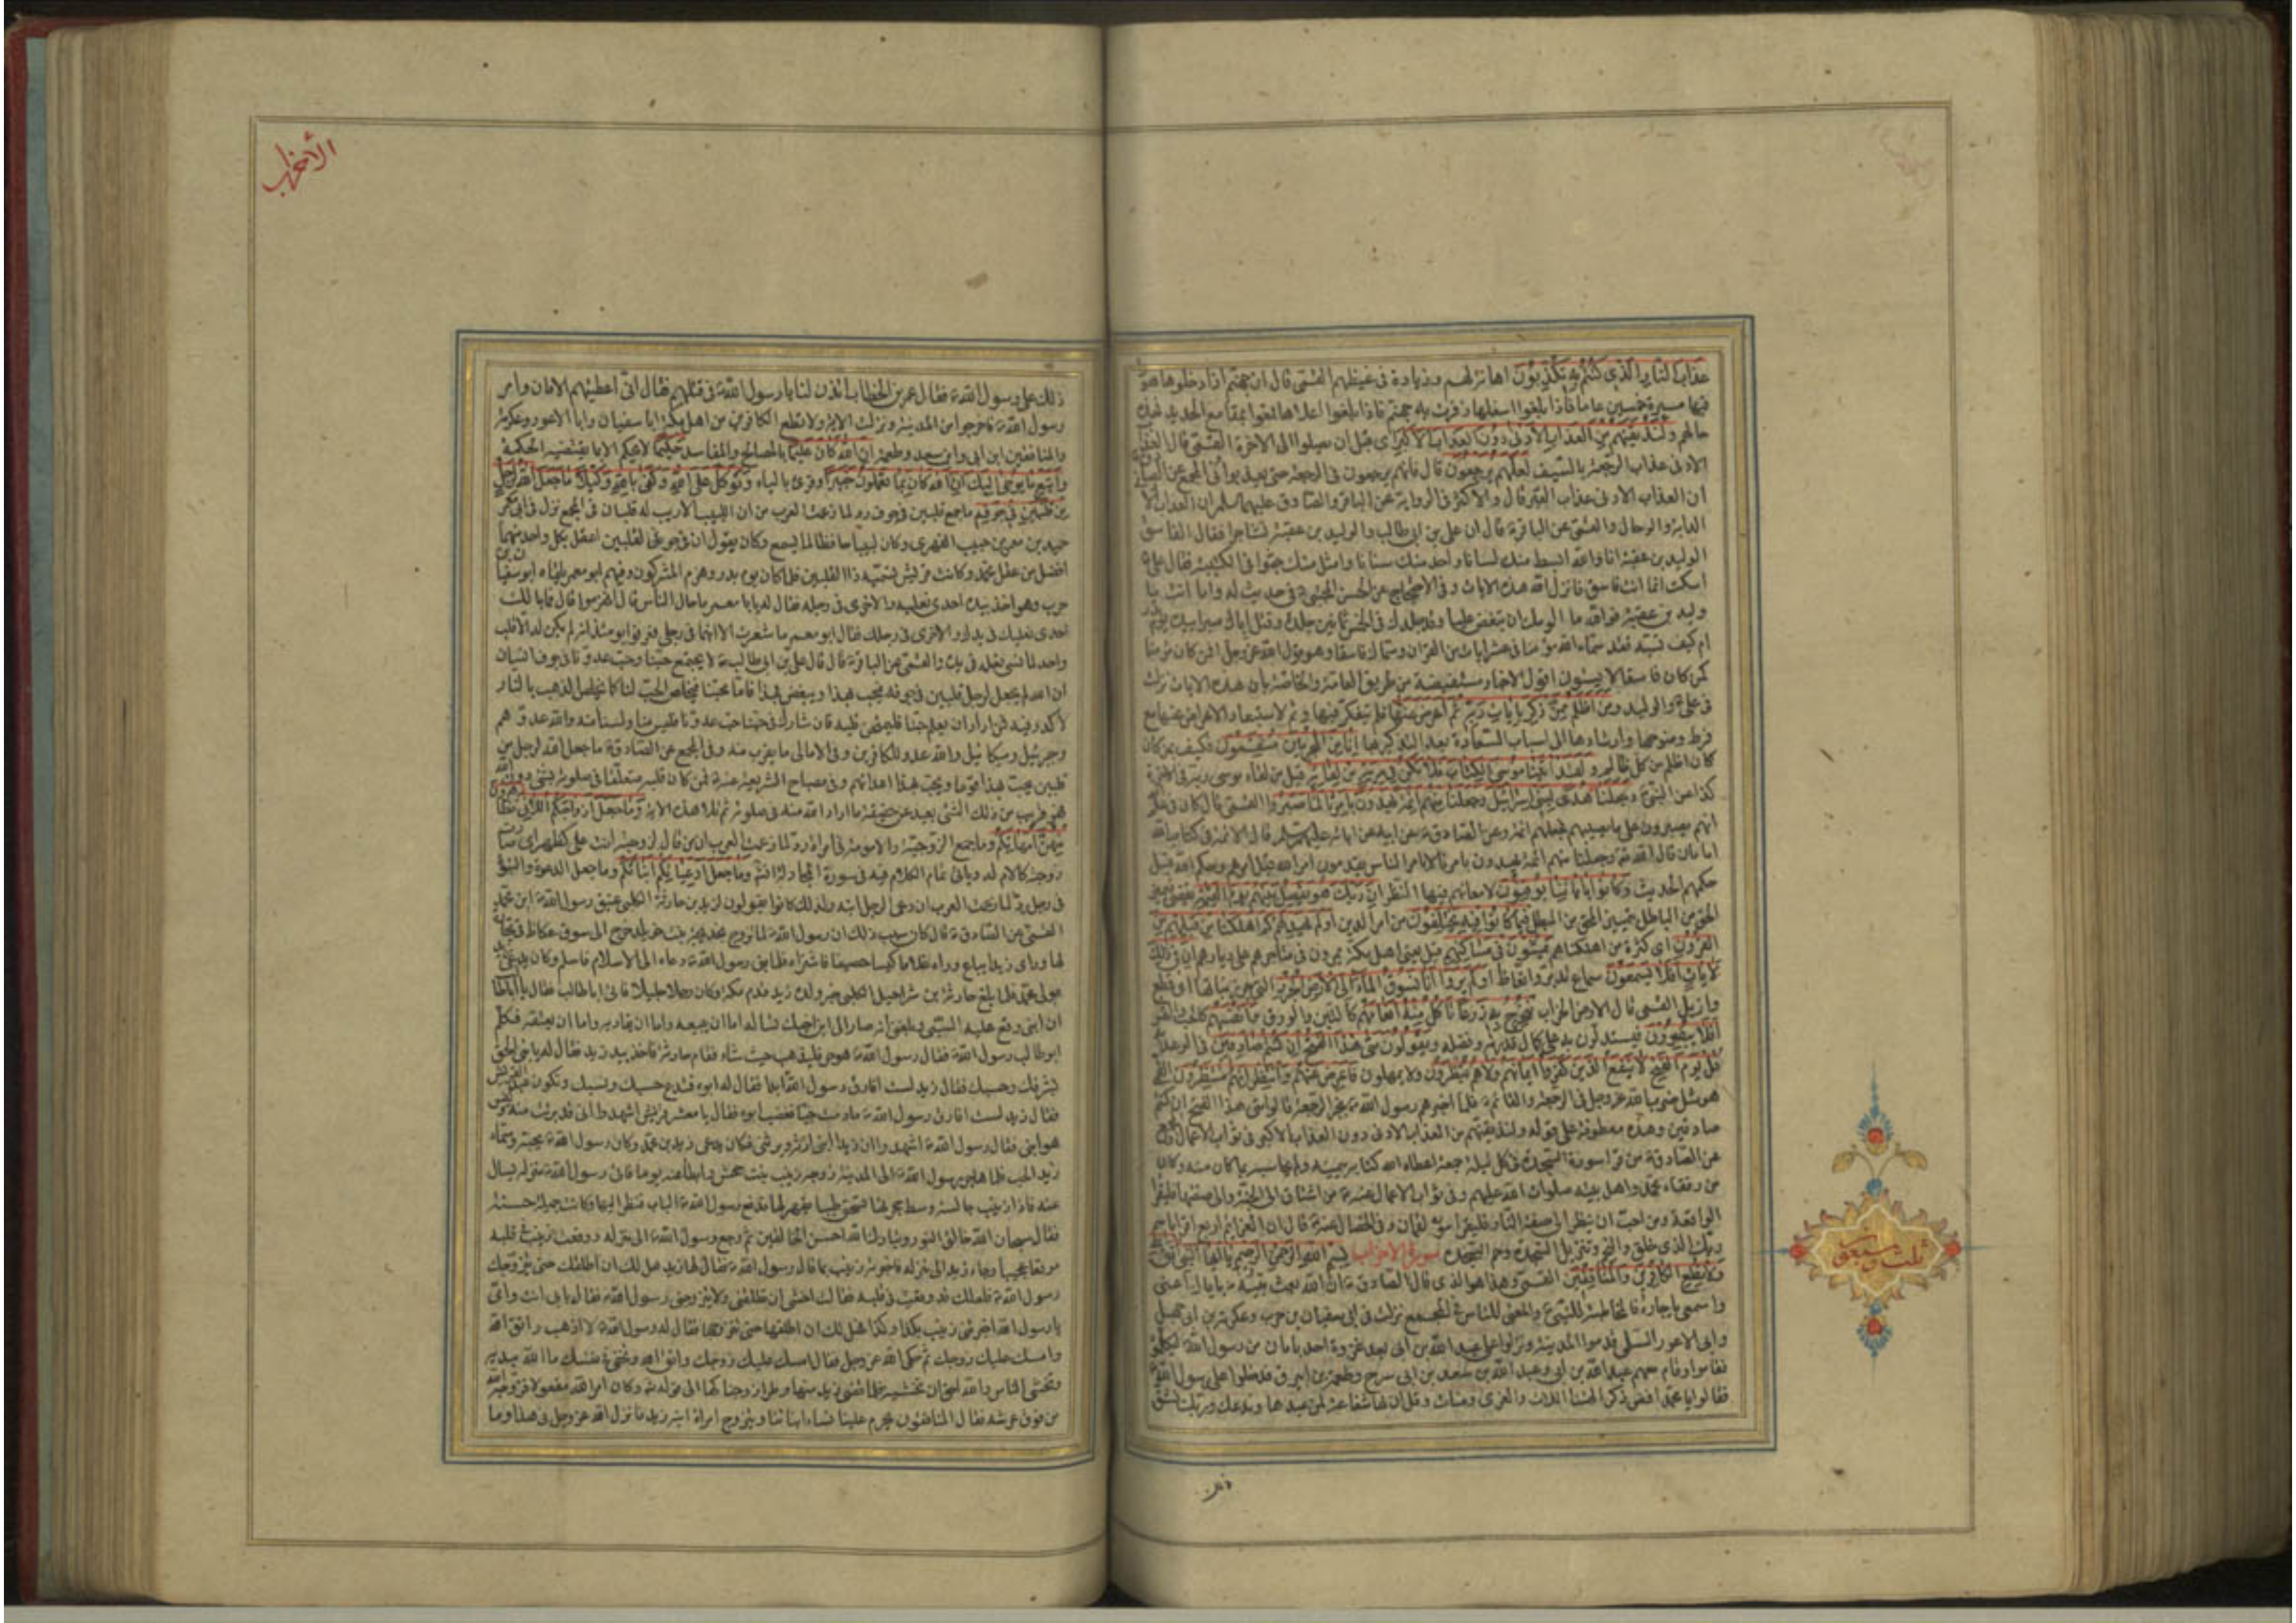 عذاب النار الذى كنتم به تكذبون اهانة لهم وزيادة فى غيظهم القمى قال ان جهنم اذا دخلوها هووا
فيها مسيرة خمسين عاما فاذا بلغوا اسفلها زفرت بهم جهنم فاذا بلغوا اعلاها قمعوا بمقامع الحديد فهذه
حالهم ولنذيقنهم من العذاب الادنى دون العذاب الاكبر اى قبل ان يصلوا الى الاخرة القمى قال العذاب
الادنى عذاب الرجعة بالسيف لعلهم يرجعون قال فانهم يرجعون فى الرجعة حتى يعذبوا فى المجمع عن
ان العذاب الادنى عذاب القبر قال والاكثر فى الرواية عن الباقر والصادق عليهما السلم ان العذاب الادنى
الدابة والدجال والقمى عن الباقر ع قال ان على بن ابى طالب والوليد بن عقبة تشاجرا فقال الفاسق
الوليد بن عقبة انا والله ابسط منك لسانا واحد منك سنانا وامثل منك جثوا فى الكتيبة فقال على ع
اسكت انما انت فاسق فانزل الله هذه الايات وفى الاحتجاج عن الحسن المجتبى ع فى حديث له واما انت يا
وليد بن عقبة فوالله ما الومك ان تبغض عليا وقد جلدك فى الخمر ثمانين جلدة وقتل اباك صبرا بيده يوم بدر
ام كيف تسبه فقد سماه الله مؤمنا فى عشر ايات من القران وسماك فاسقا وهو قول الله عز وجل افمن كان مؤمنا
كمن كان فاسقا لا يستون اقول الاخبار مستفيضة من طريق العامة والخاصة بان هذه الايات نزلت
فى على ع والوليد ومن اظلم ممن ذكر بايات ربه ثم اعرض عنها فلم يتفكر فيها وثم لاستبعاد الاعراض عنها مع
فرط وضوحها وارشادها الى اسباب السعادة بعد التذكير بها انا من المجرمين منتقمون فكيف بمن كان
كان اظلم من كل ظالم ولقد اتينا موسى الكتاب فلا تكن فى مرية من لقائه قيل من لقاء موسى ربه فى الاخرة
كذا عن النبى ص وجعلناه هدى لبنى اسرائيل وجعلنا منهم ائمة يهدون بامرنا لما صبروا القمى قال كان فى علم
انهم يصبرون على ما يصيبهم فجعلهم ائمة وعن الصادق ع عن ابيه عن ابائه عليهم سلم قال الائمة فى كتاب الله
امامان قال الله تع وجعلنا منهم ائمة يهدون بامرنا لا بامر الناس يقدمون امر الله قبل امرهم وحكم الله قبل
حكمهم الحديث وكانوا باياتنا يوقنون لامعانهم فيها النظر ان ربك هو يفصل بينهم يوم القيمة يقضى فيميز
الحق من الباطل بتمييز المحق من المبطل فيما كانوا فيه يختلفون من امر الدين اولم يهد لهم كم اهلكنا من قبلهم من
القرون اى كثرة من اهلكناهم يمشون فى مساكنهم قيل يعنى اهل مكة يمرون فى متاجرهم على ديارهم ان فى ذلك
لايات افلا يسمعون سماع تدبر واتعاظ اولم يروا انا نسوق الماء الى الارض الجرز التى جرز نباتها اى قطع
وازيل القمى قال الارض الخراب فنخرج به زرعا تاكل منه انعامهم كالتبن والورق وانفسهم كالحب والثمر
افلا يبصرون فيستدلون به على كمال قدرته وفضله ويقولون متى هذا الفتح ان كنتم صادقين فى الوعد به
قل يوم الفتح لا ينفع الذين كفروا ايمانهم ولا هم ينظرون ولا يمهلون فاعرض عنهم وانتظر انهم منتظرون القمى
هو مثل ضربه الله عز وجل فى الرجعة والقائم ع فلما اخبرهم رسول الله ص بخبر الرجعة قالوا متى هذا الفتح ان كنتم
صادقين وهذه معطوفة على قوله ولنذيقنهم من العذاب الادنى دون العذاب الاكبر فى ثواب الاعمال
عن الصادق ع من قرا سورة السجدة فى كل ليلة جمعة اعطاه الله كتابه بيمينه ولم يحاسبه بما كان منه وكان
من رفقاء محمد واهل بيته صلوات الله عليهم وفى ثواب الاعمال عنه ع من اشتاق الى الجنة والى صفتها فليقرا
الواقعة ومن احب ان ينظر الى صفة النار فليقرا سورة لقمان وفى الخصال عنه ع قال ان العزايم اربع اقرا باسم
ربك الذى خلق والنجم وتنزيل السجدة وحم السجدة سورة الاحزاب بسم الله الرحمن الرحيم يا ايها النبى اتق الله
ولا تطع الكافرين والمنافقين القمى وهذا هو الذى قال الصادق ع ان الله بعث نبيه ص باياك اعنى
واسمعى يا جارة فالمخاطبة للنبى ص والمعنى للناس فى المجمع نزلت فى ابى سفيان بن حرب وعكرمة بن ابى جهل
وابى الاعور السلمى قدموا المدينة ونزلوا على عبد الله بن ابى بعد غزوة احد بامان من رسول الله ص ليكلموه
فقاموا وقام معهم عبد الله بن ابى وعبد الله بن سعد بن ابى سرح وطعمة بن ابيرق فدخلوا على رسول الله ص
فقالوا يا محمد ارفض ذكر الهتنا اللات والعزى ومناة وقل ان لها شفاعة لمن عبدها وندعك وربك فشق
ذلك
ثلث سبعون
الاحزاب
ذلك على رسول الله ص فقال عمر بن الخطاب ائذن لنا يا رسول الله ص فى قتلهم فقال انى اعطيتهم الامان وامر
رسول الله ص فاخرجوا من المدينة ونزلت الاية ولا تطع الكافرين من اهل مكة ابا سفيان وابا الاعور وعكرمة
والمنافقين ابن ابى وابن سعد وطعمة ان الله كان عليما بالمصالح والمفاسد حكيما لا يحكم الا بما يقتضيه الحكمة
واتبع ما يوحى اليك ان الله كان بما تعملون خبيرا وقرئ بالياء وتوكل على الله وكفى بالله وكيلا ما جعل الله لرجل
من قلبين فى جوفه ما جمع قلبين فى جوف رد لما زعمت العرب من ان اللبيب الاريب له قلبان فى المجمع نزل فى ابى معمر
حميد بن معمر بن حبيب الفهرى وكان لبيبا حافظا لما يسمع وكان يقول ان فى جوفى لقلبين اعقل بكل واحد منهما
افضل من عقل محمد وكانت قريش تسميه ذا القلبين فلما كان يوم بدر وهزم المشركون وفيهم ابو معمر يلقاه ابو سفيان بن
حرب وهو اخذ بيده احدى نعليه والاخرى فى رجله فقال له يا با معمر ما حال الناس قال انهزموا قال فما بالك
احدى نعليك فى يدك والاخرى فى رجلك فقال ابو معمر ما شعرت الا انهما فى رجلى فعرفوا يومئذ انه لم يكن له الا قلب
واحد لما نسى نعله فى يده والقمى عن الباقر ع قال قال على بن ابى طالب ع لا يجتمع حبنا وحب عدونا فى جوف انسان
ان الله لم يجعل لرجل قلبين فى جوفه فيحب بهذا ويبغض بهذا فاما محبنا فيخلص الحب لنا كما يخلص الذهب بالنار
لا كدر فيه فمن اراد ان يعلم حبنا فليمتحن قلبه فان شارك فى حبنا حب عدونا فليس منا ولسنا منه والله عدوهم
وجبرئيل وميكائيل والله عدو للكافرين وفى الامالى ما يقرب منه وفى المجمع عن الصادق ع ما جعل الله لرجل من
قلبين يحب بهذا قوما ويحب بهذا اعدائهم وفى مصباح الشريعة عنه ع فمن كان قلبه متعلقا فى صلوته بشئ دون الله
فهو قريب من ذلك الشئ بعيد عن حقيقة ما اراد الله منه فى صلوته ثم تلا هذه الاية وما جعل ازواجكم اللائى تظاهرون
منهن امهاتكم وما جمع الزوجية والامومة فى امراة رد لما زعمت العرب ان من قال لزوجته انت على كظهر امى صارت
زوجته كالام له وياتى تمام الكلام فيه فى سورة المجادلة انشا وما جعل ادعياءكم ابناءكم وما جعل الدعوة والبنوة
فى رجل رد لما زعمت العرب ان دعى الرجل ابنه ولذلك كانوا يقولون لزيد بن حارثة الكلبى عتيق رسول الله ص ابن محمد
القمى عن الصادق ع قال كان سبب ذلك ان رسول الله ص لما تزوج بخديجة بنت خويلد خرج الى سوق عكاظ فى تجارة
لها وراى زيدا يباع وراه غلاما كيسا حصيفا فاشتراه فلما نبئ رسول الله ص دعاه الى الاسلام فاسلم وكان يدعى زيد
مولى محمد فلما بلغ حارثة ابن شراحيل الكلبى خبر ولده زيد قدم مكة وكان رجلا جليلا فاتى ابا طالب فقال يا ابا طالب
ان ابنى وقع عليه السبى وبلغنى انه صار الى ابن اخيك تساله اما ان يبيعه واما ان يفاديه واما ان يعتقه فكلم
ابو طالب رسول الله ص فقال رسول الله ص هو حر فليذهب حيث شاء فقام حارثة فاخذ بيد زيد فقال له يا بنى الحق
بشرفك وحسبك فقال زيد لست افارق رسول الله ابدا فقال له ابوه فتدع حسبك ونسبك وتكون عبدا لقريش
فقال زيد لست افارق رسول الله ص ما دمت حيا فغضب ابوه فقال يا معشر قريش اشهدوا انى قد برئت منه وليس
هو ابنى فقال رسول الله ص اشهدوا ان زيدا ابنى ارثه ويرثنى فكان يدعى زيد بن محمد وكان رسول الله ص يحبه وسماه
زيد الحب فلما هاجر رسول الله ص الى المدينة زوجه زينب بنت جحش وابطا عنه يوما فاتى رسول الله ص منزله يسال
عنه فاذا زينب جالسة وسط حجرتها تسحق طيبا بفهر لها فدفع رسول الله ص الباب فنظر اليها وكانت جميلة حسنة
فقال سبحان الله خالق النور وتبارك الله احسن الخالقين ثم رجع رسول الله ص الى منزله ووقعت زينب فى قلبه
موقعا عجيبا وجاء زيد الى منزله فاخبرته زينب بما قال رسول الله ص فقال لها زيد هل لك ان اطلقك حتى يتزوجك
رسول الله ص فلعلك قد وقعت فى قلبه فقالت اخشى ان تطلقنى ولا يتزوجنى رسول الله ص فقال بابى انت وامى
يا رسول الله اخبرتنى زينب بكذا وكذا فهل لك ان اطلقها حتى تتزوجها فقال له رسول الله ص لا اذهب واتق الله
وامسك عليك زوجك ثم حكى الله عز وجل فقال امسك عليك زوجك واتق الله وتخفى فى نفسك ما الله مبديه
وتخشى الناس والله احق ان تخشيه فلما قضى زيد منها وطرا زوجناكها الى قوله تع وكان امر الله مفعولا فزوجه الله
من فوق عرشه فقال المنافقون يحرم علينا نساء ابنائنا ويتزوج امراة ابنه زيد فانزل الله عز وجل فى هذا وما